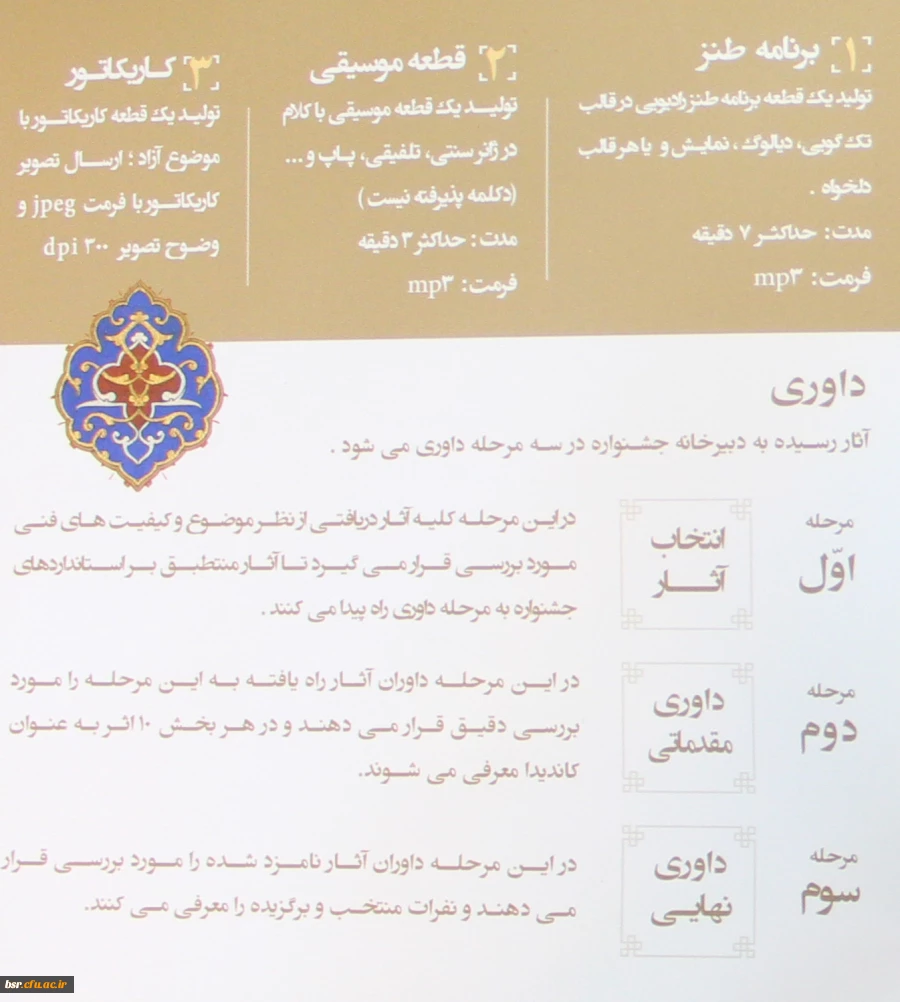 ۱ برنامه طنز
تولید یک قطعه برنامه طنز رادیویی در قالب
تک گویی، دیالوگ ، نمایش و یا هر قالب
دلخواه .
مدت: حداکثر ۷ دقیقه
فرمت: mp۳
۲ قطعه موسیقی
تولید یک قطعه موسیقی با کلام
در ژانر سنتی، تلفیقی، پاپ و ...
(دکلمه پذیرفته نیست)
مدت: حداکثر ۳ دقیقه
فرمت: mp۳
۳ کاریکاتور
تولید یک قطعه کاریکاتور با
موضوع آزاد ؛ ارسال تصویر
کاریکاتور با فرمت jpeg و
وضوح تصویر ۳۰۰ dpi
داوری
آثار رسیده به دبیرخانه جشنواره در سه مرحله داوری می شود .
مرحله
اوّل
انتخاب
آثار
در این مرحله کلیه آثار دریافتی از نظر موضوع و کیفیت های فنی
مورد بررسی قرار می گیرد تا آثار منتطبق بر استانداردهای
جشنواره به مرحله داوری راه پیدا می کنند .
مرحله
دوم
داوری
مقدماتی
در این مرحله داوران آثار راه یافته به این مرحله را مورد
بررسی دقیق قرار می دهند و در هر بخش ۱۰ اثر به عنوان
کاندیدا معرفی می شوند.
مرحله
سوم
داوری
نهایی
در این مرحله داوران آثار نامزد شده را مورد بررسی قرار
می دهند و نفرات منتخب و برگزیده را معرفی می کنند.
bsr.cfu.ac.ir